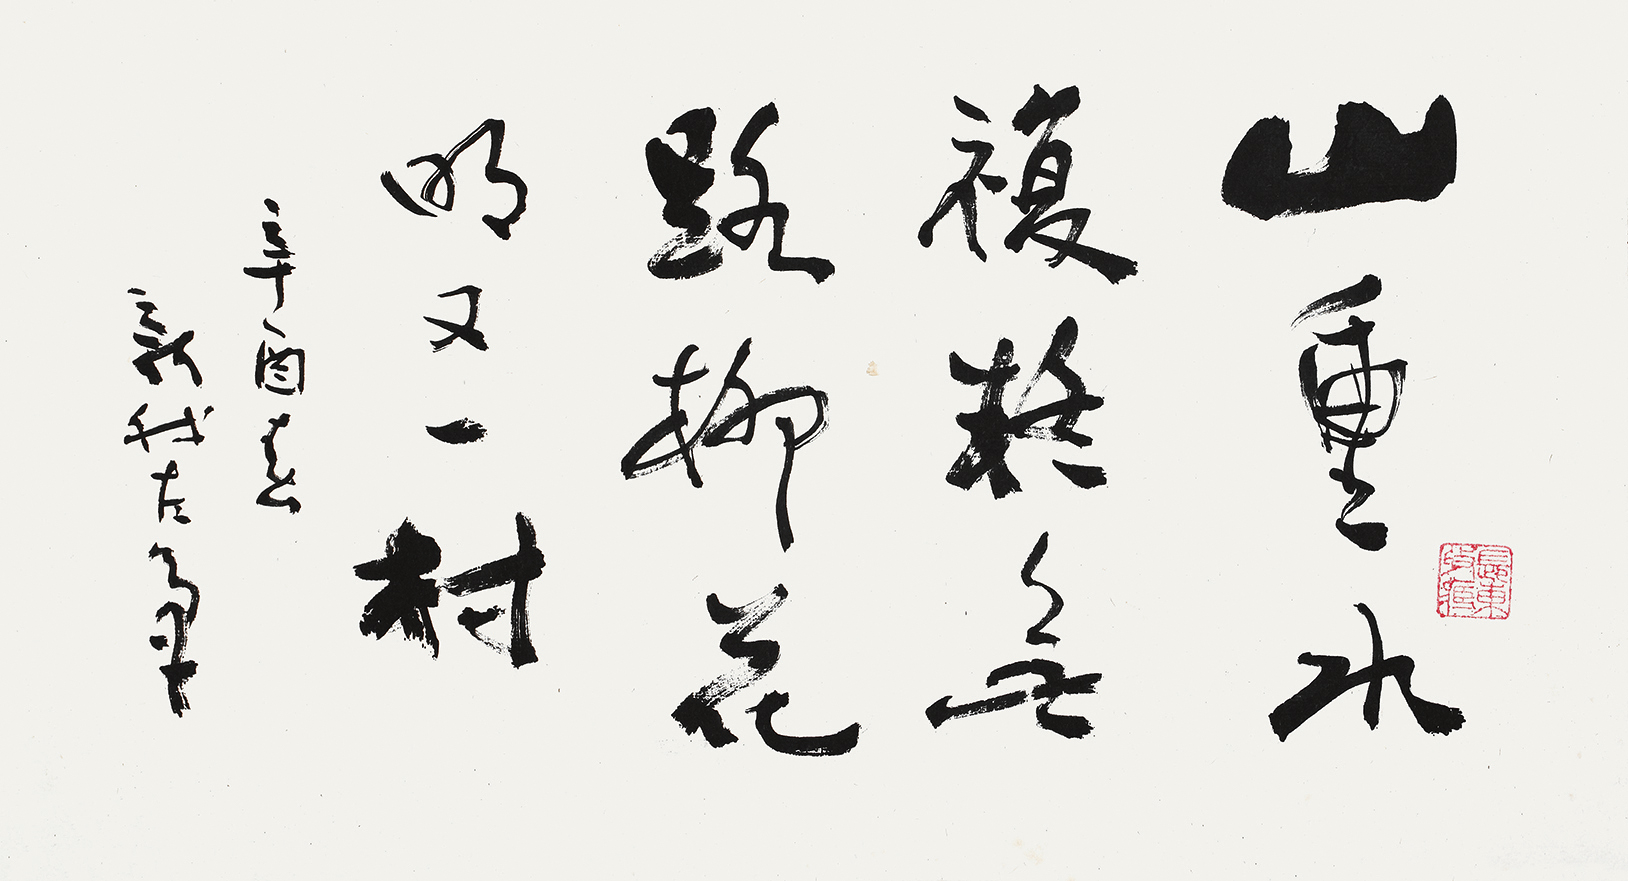 山重水
複疑無
路柳花
明又一村
辛酉春
新我左筆